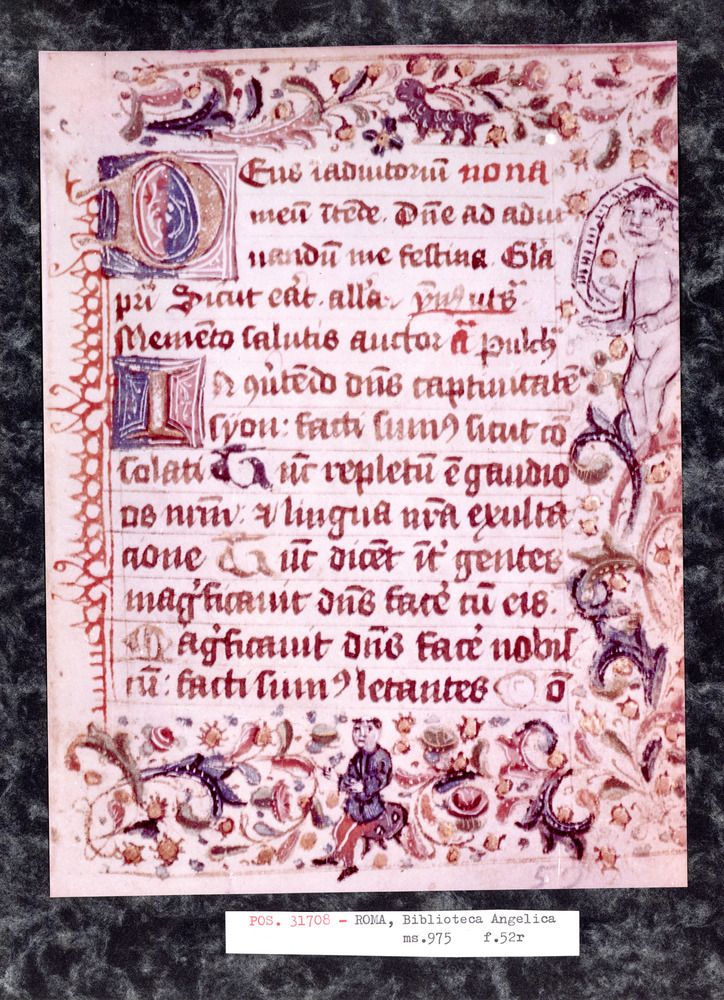 Deus ī adiutoriū nona
meū ītēde. Dn̄e ad adiu
uandū me festina. Gl̄a
pr̄i Sicut erat. all'a. ymus
Memēto salutis auctor a pulch
In ꝯũtēdo dn̄s captiuitatē
syon: facti sumꝰ sicut cō
solati Tūc repletū ē gaudio
os nrm̄: ⁊ lingua nr̄a exulta
cione Tūc dicēt īt̉ gentes
mag̉ficauit dn̄s face̛ cū eis.
Mag̉ficauit dn̄s face̛ nobis
cū: facti sumꝰ letantes ō
POS. 31708 - ROMA, Biblioteca Angelica
ms.975 f.52r